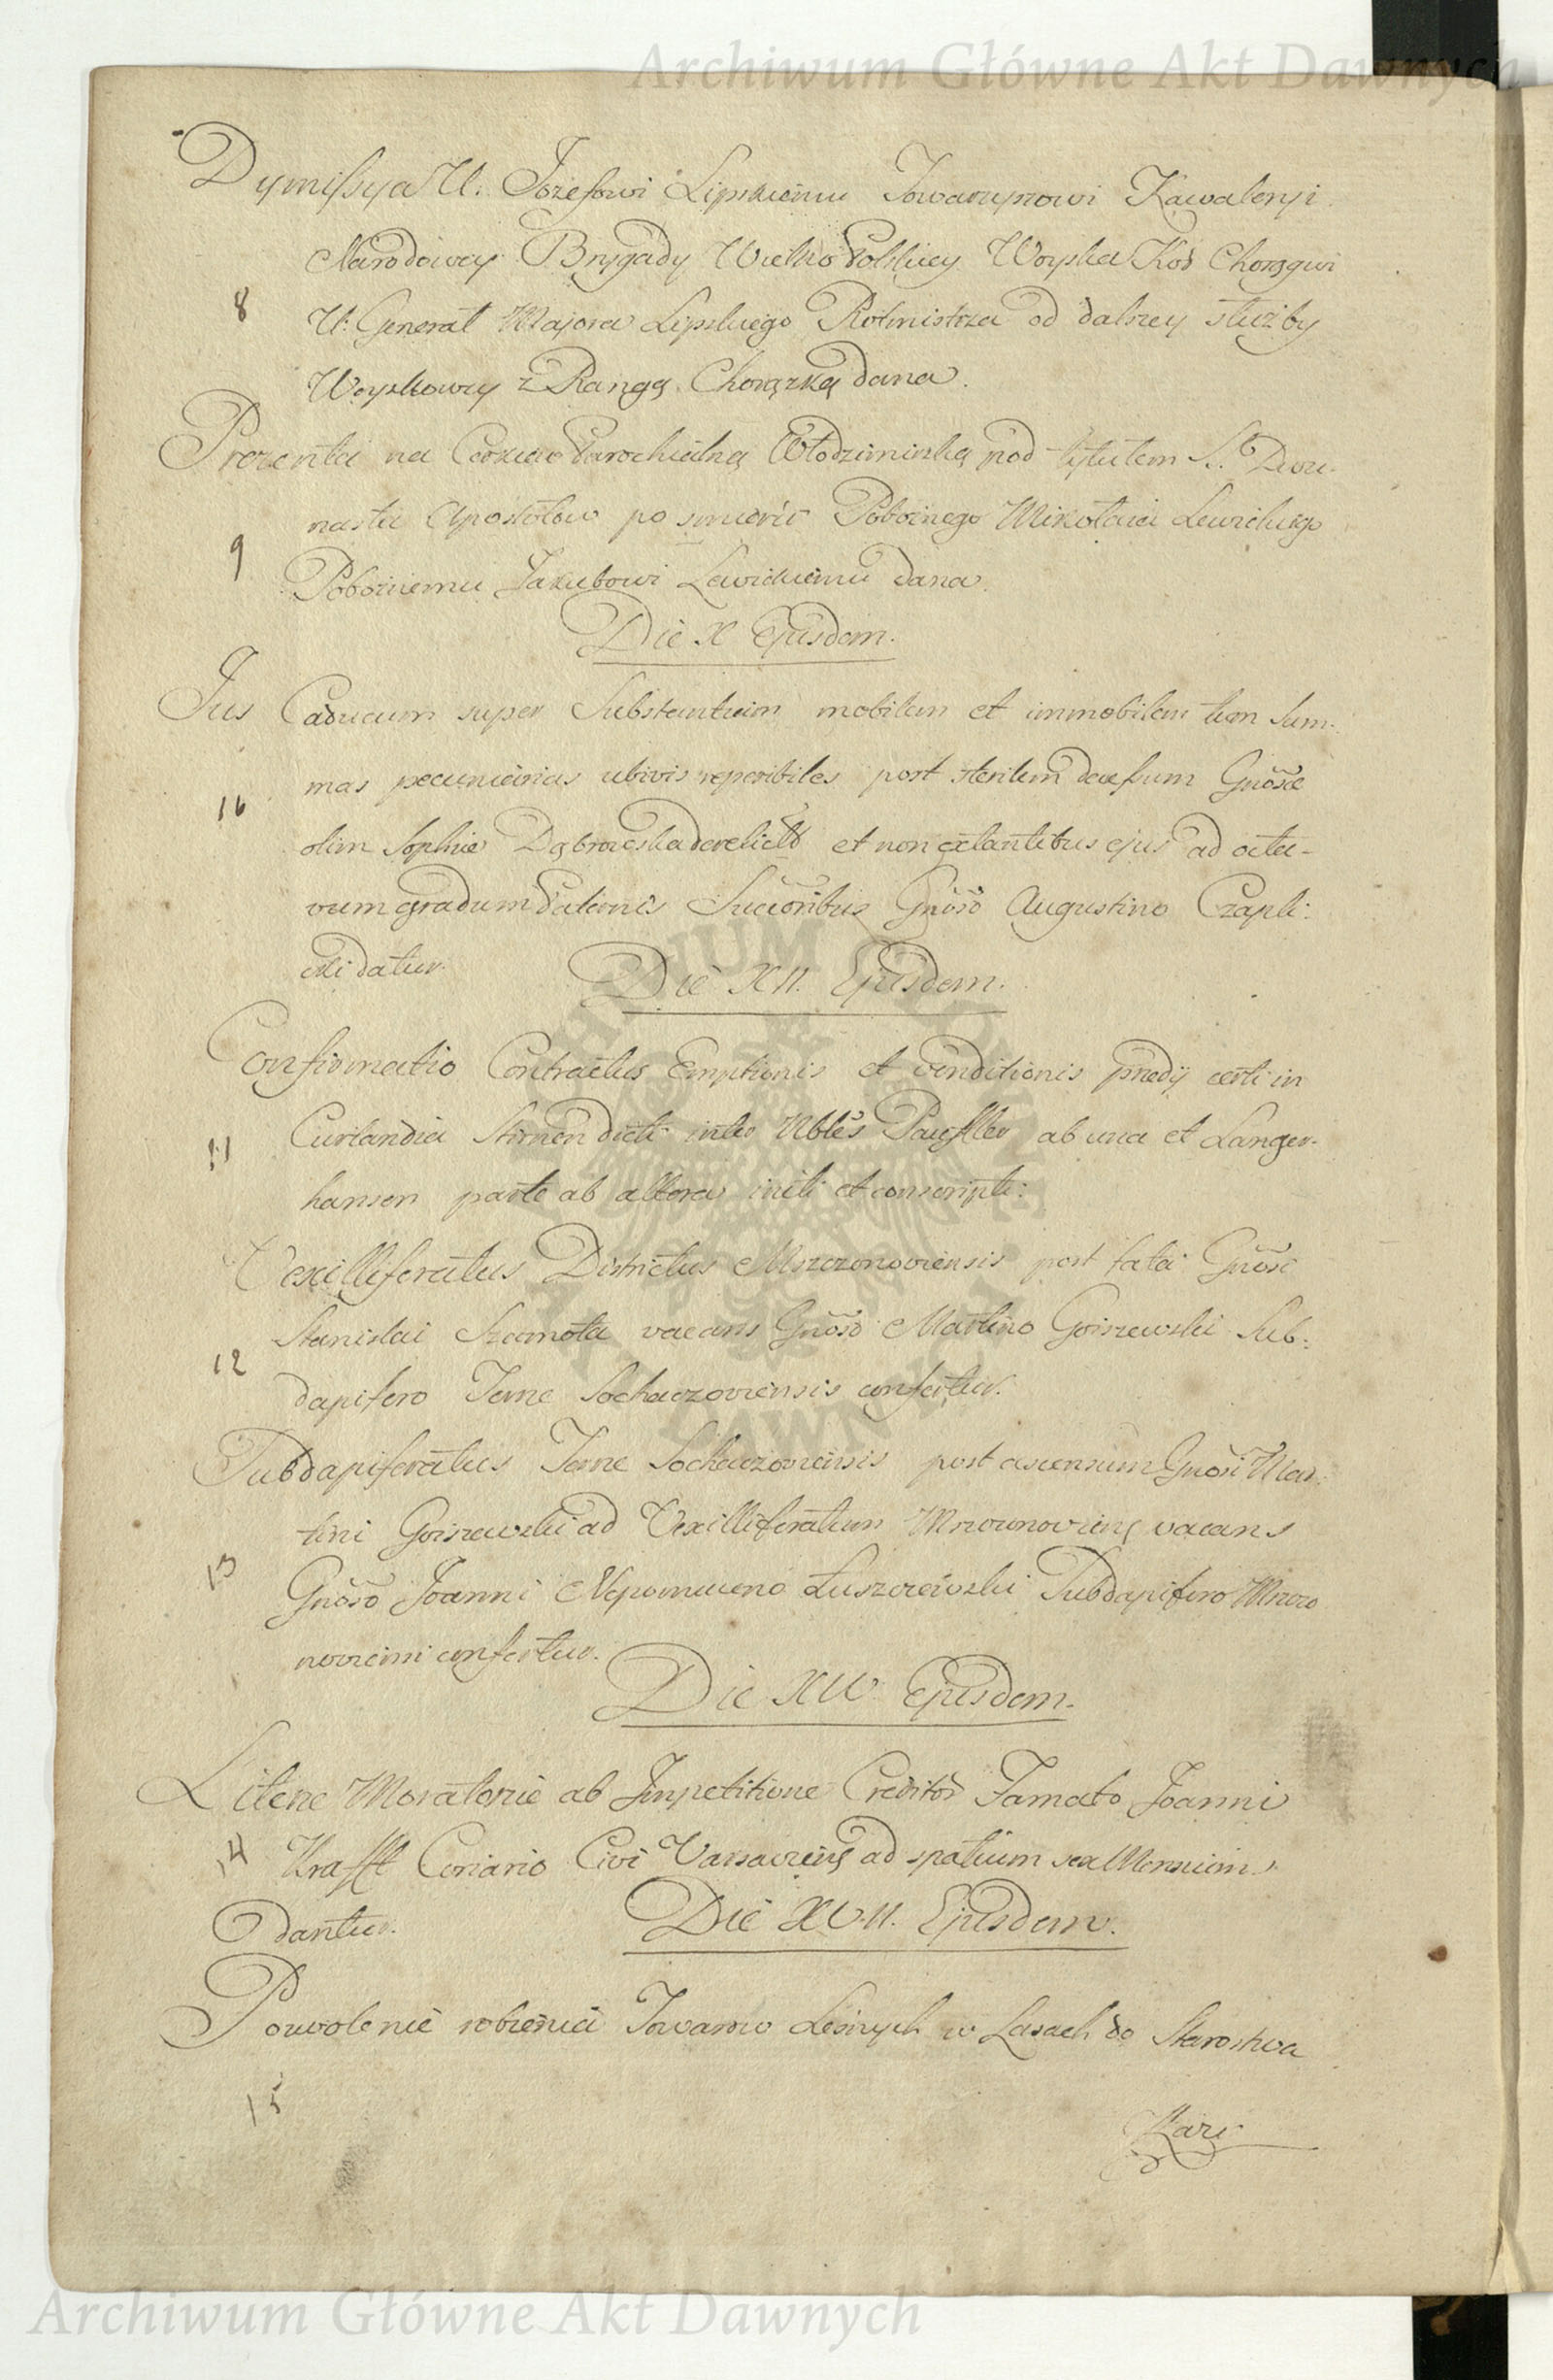 Archiwum Główne Akt Dawnych
Dymissya U. Jozefowi Lipskiemu Towarzyszowi Kawaleryi
Narodowey Brygady Wielko Polskiey Woyska Kor Chorągwi
8 U. General Majora Lipskiego Rotmistrza od dalszey służby
Woyskowey z Rangą Chorązką dana.
Prezenta na Cerkiew Parochialną Włodzimirską pod tytułem S. Dwu-
nastu Apostołow po smierci Pobożnego Mikołaia Lewickiego
9 Pobożnemu Jakubowi Lewickiemu dana.
Die X Ejusdem.
Jus Caducum super Substantiam mobilem et immobilem tum Sum-
mas pecuniarias ubivis reperibiles post sterilem decessum Gnosæ
10 olim Sophiæ Dąbrowska derelictas et non extantibus ejus ad octa-
vum gradum Paternis Succoribus Gnoso Augustino Czapli-
cki datur.
Die XII. Ejusdem.
Confirmatio Contractus Emptionis et venditionis prædij certi in
11 Curlandia Stirnen dicti inter Nbles Paeffler ab una et Langer-
hansen parte ab altera initi et conscripti:
Vexilliferatus Districtus Mszczonoviensis post fata Gnosi
12 Stanislai Szamota vacans Gnoso Martino Goiszewski Sub-
dapifero Terræ Sochaczoviensis confertur.
Subdapiferatus Terræ Sochaczoviensis post ascensum Gnosi Mar-
tini Goiszewski ad Vexilliferatum Mszczonoviens vacans
13 Gnoso Joanni Nepomuceno Łuszczewski Subdapifero Mszczo
noviensi confertur.
Die XIV Ejusdem.
Literæ Moratoriæ ab Impetitione Creditor Famato Joanni
14 Krafft Coriario Civi Varsaviens ad spatium sex Mensium
dantur.
Die XVII. Ejusdem.
Pozwolenie robienia Towarow Leśnych w Lasach do Starostwa
15
Archiwum Główne Akt Dawnych